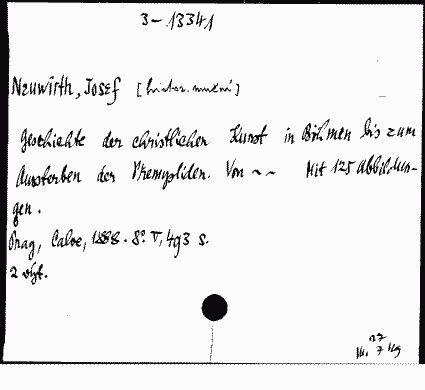 3-13341
Neuwirth, Josef [histor. umění]
Geschichte der christlichen Kunst in Böhmen bis zum
Aussterben der Přemysliden. Von ~ ~ Mit 125 Abbildun-
gen.
Prag, Calve, 1888. 8° V, 493 S.
2 výt.